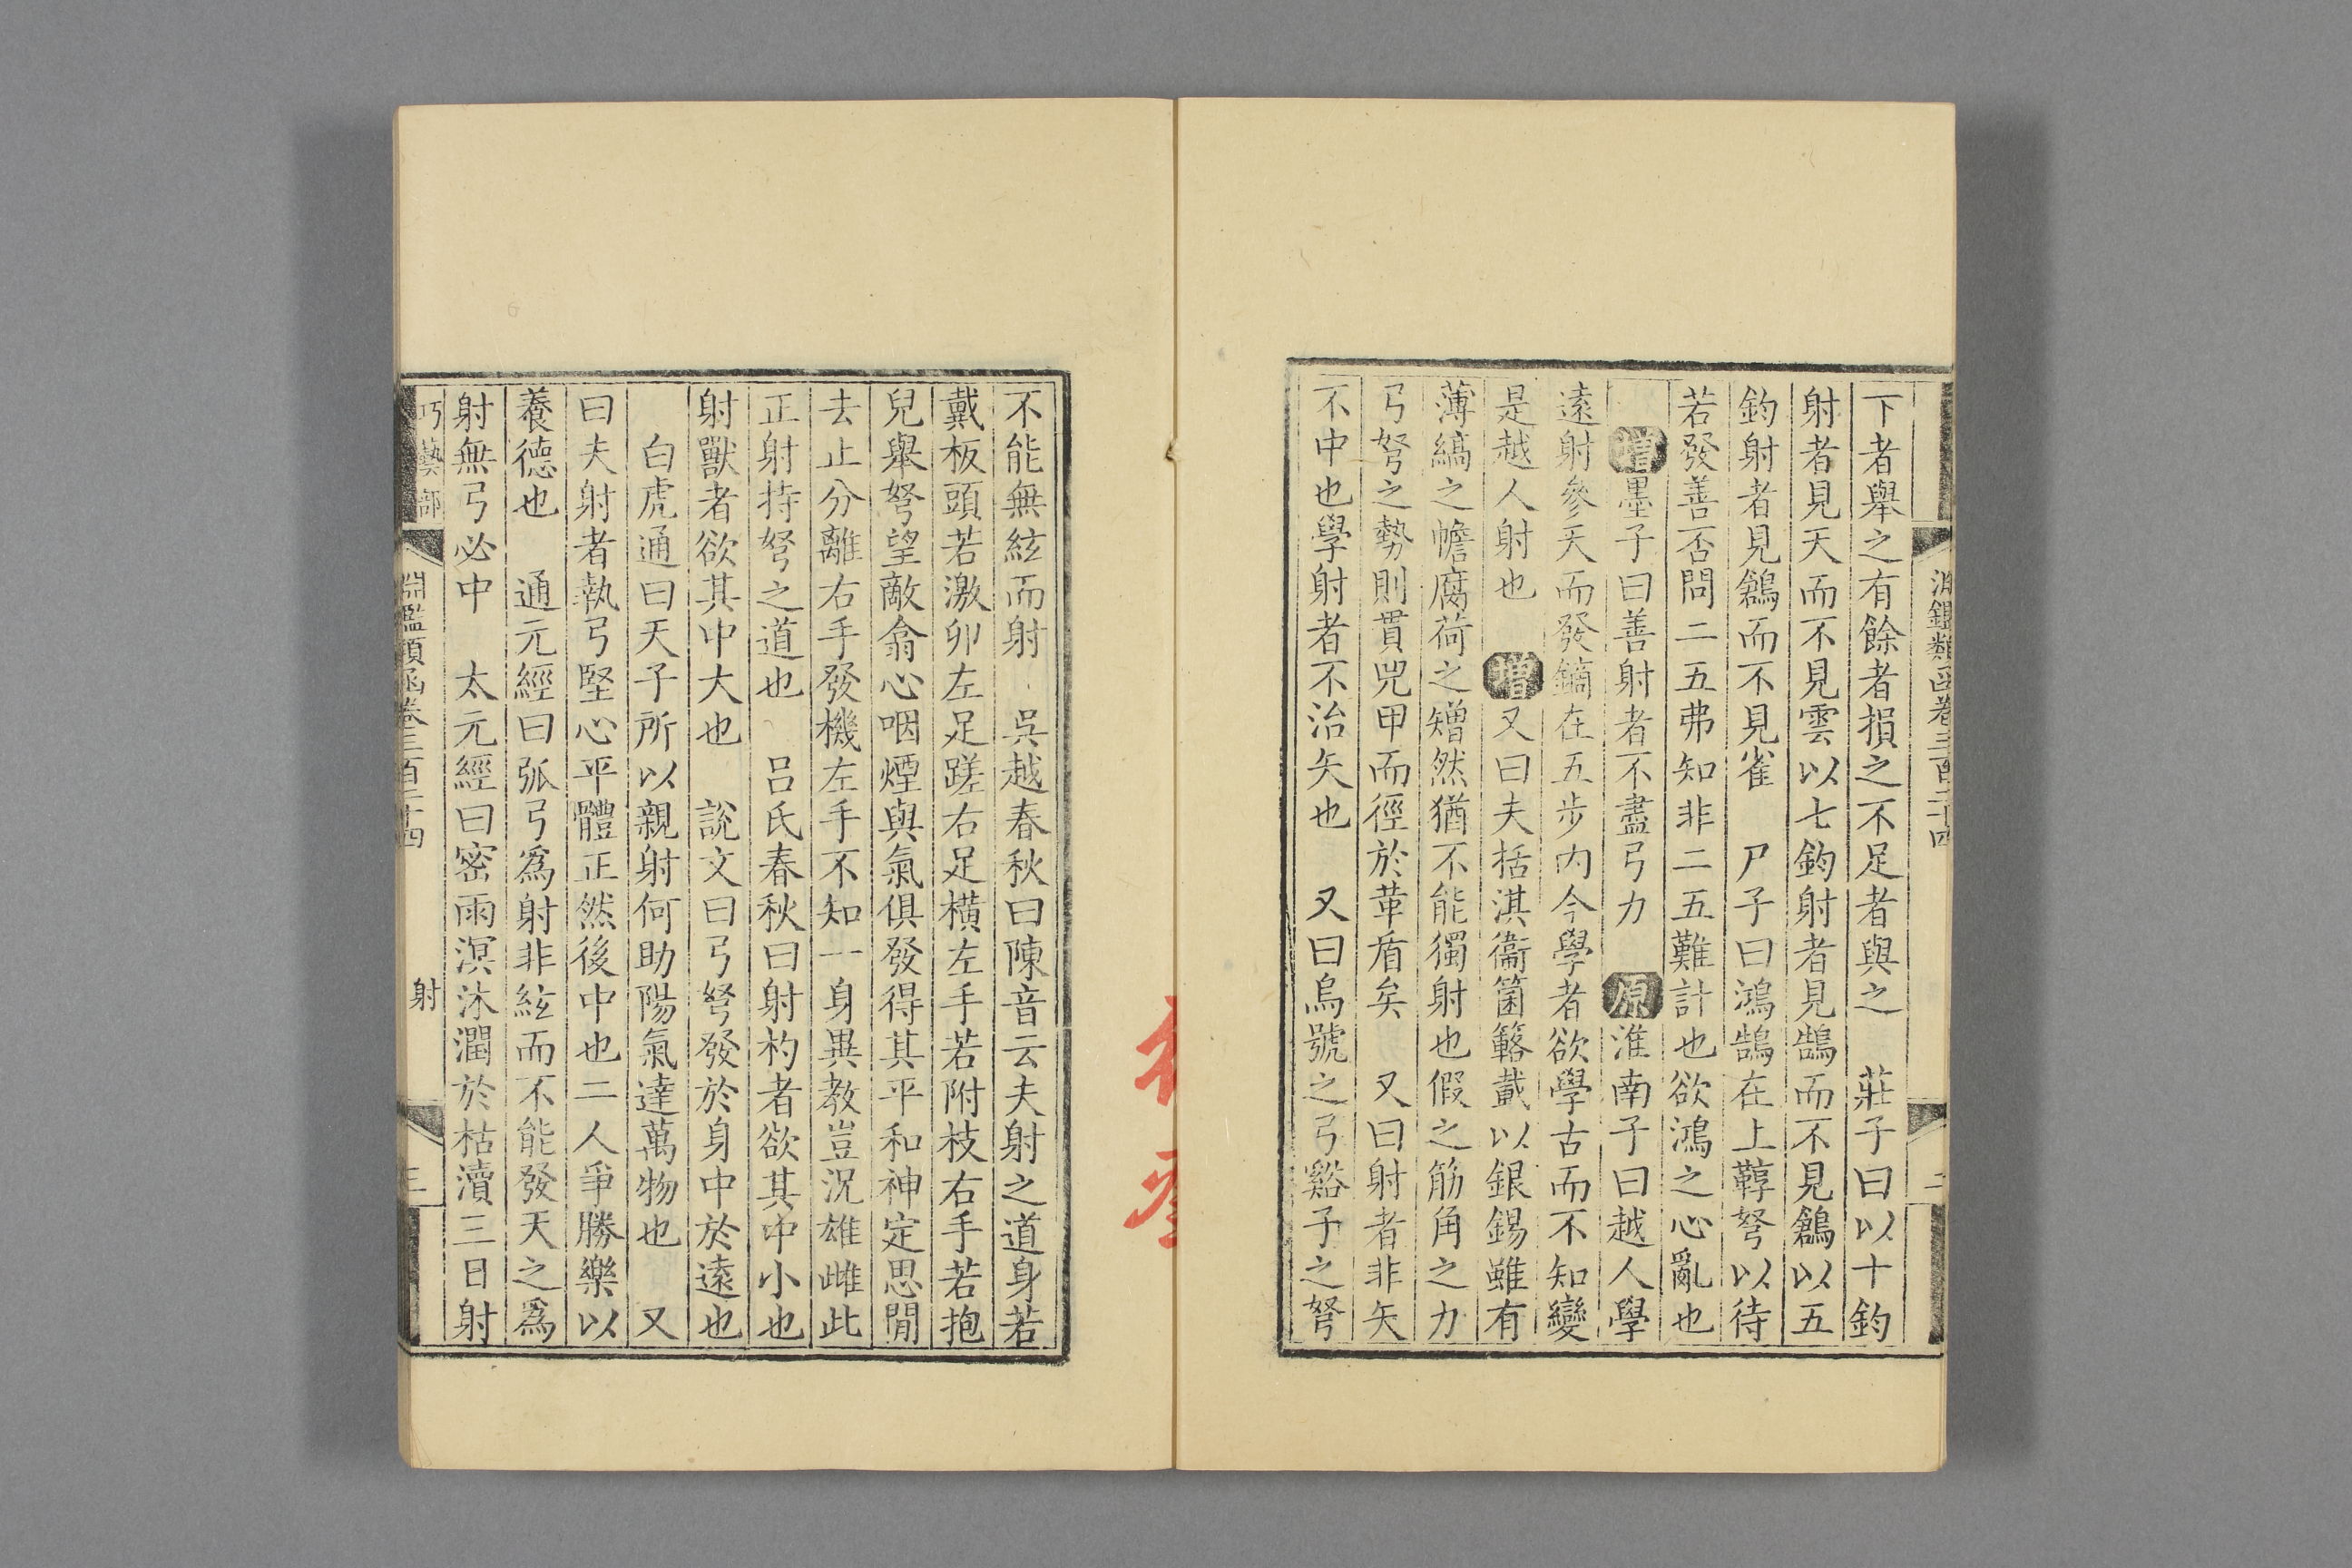 下者舉之有餘者損之不足者與之　莊子曰以十鈞
射者見天而不見雲以七鈞射者見鵠而不見鶬以五
鈞射者見鶬而不見雀　尸子曰鴻鵠在上䩮弩以待
若發善否問二五弗知非二五難計也欲鴻之心亂也
增墨子曰善射者不盡弓力　原淮南子曰越人學
遠射參天而發鏑在五步內今學者欲學古而不知變
是越人射也　增又曰夫栝淇衞箘簵戴以銀錫雖有
薄縞之幨腐荷之矰然猶不能獨射也假之筋角之力
弓弩之勢則貫兕甲而徑於革盾矣　又曰射者非矢
不中也學射者不治矢也　又曰烏號之弓谿子之弩
不能無絃而射　吳越春秋曰陳音云夫射之道身若
戴板頭若激卯左足蹉右足橫左手若附枝右手若抱
兒舉弩望敵翕心咽煙與氣俱發得其平和神定思閒
去止分離右手發機左手不知一身異教豈況雄雌此
正射持弩之道也　呂氏春秋曰射杓者欲其中小也
射獸者欲其中大也　說文曰弓弩發於身中於遠也
白虎通曰天子所以親射何助陽氣達萬物也　又
曰夫射者執弓堅心平體正然後中也二人爭勝樂以
養德也　通元經曰弧弓爲射非絃而不能發天之爲
射無弓必中　太元經曰密雨溟沐潤於枯瀆三日射
巧藝部　淵鑑類函卷三百二十四　射　三